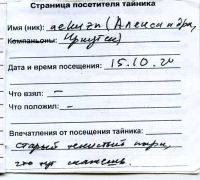 Страница посетителя тайника
Имя (ник): (Александра,
Компаньоны: Иркутск)
Дата и время посещения: 15.10.20
Что взял: –
Что положил: –
Впечатления от посещения тайника:
старый тенистый парк,
что тут скажешь.